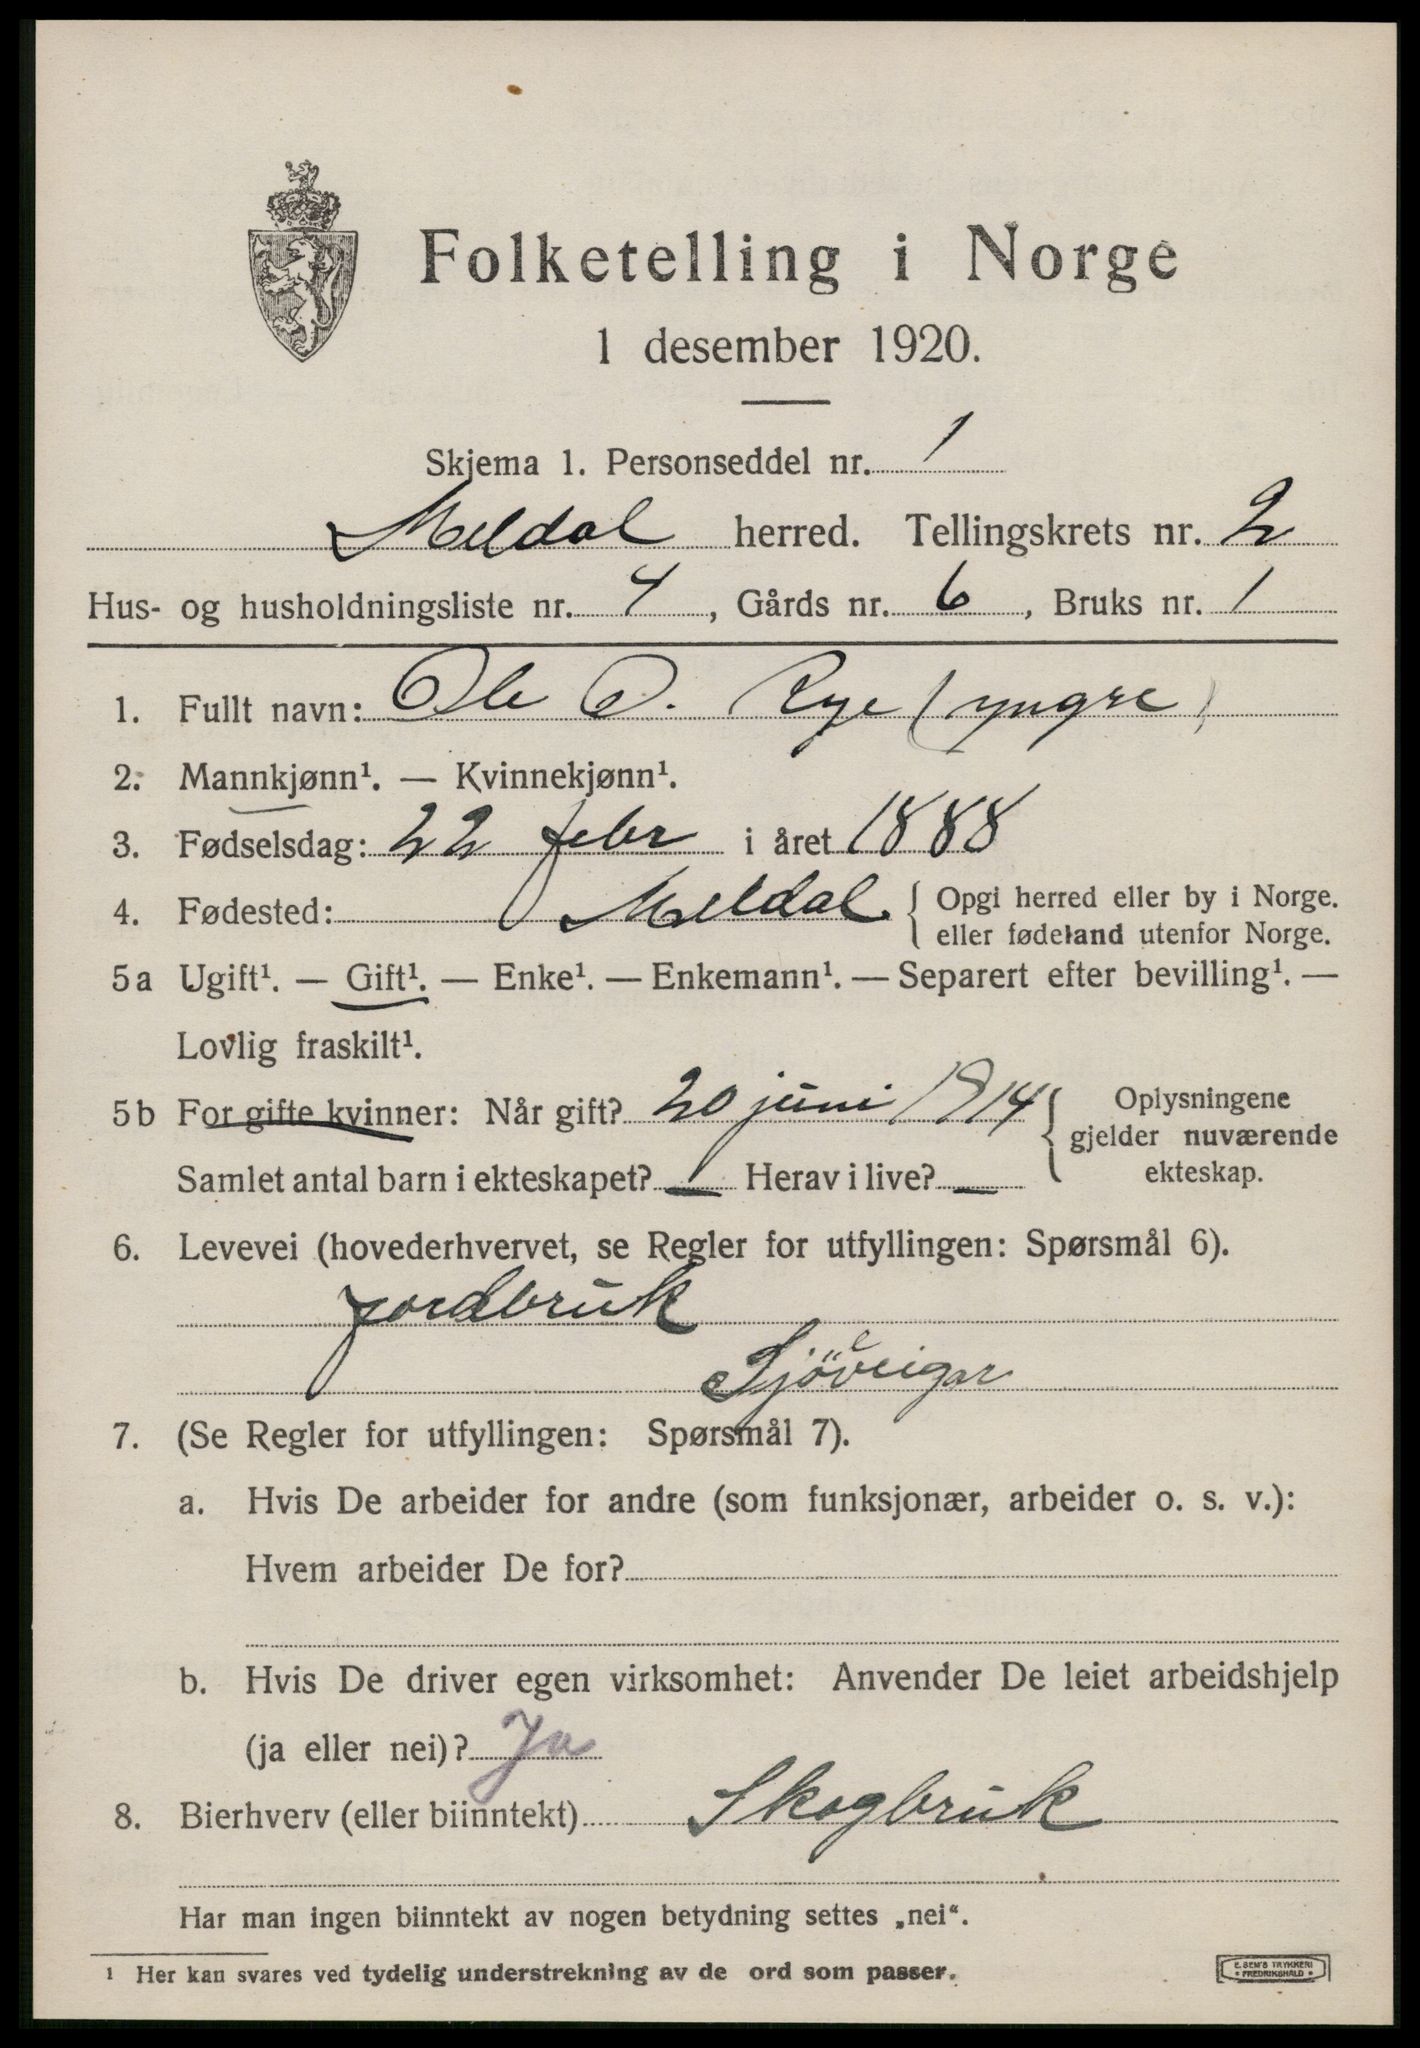 Folketelling i Norge
1 desember 1920.
Skjema 1. Personseddel nr. 1
Meldal herred. Tellingskrets nr. 2
Hus- og husholdningsliste nr. 4, Gårds nr. 6, Bruks nr. 1
1. Fullt navn: Ole O. Rye (yngre)
2. Mannkjønn¹. — Kvinnekjønn¹.
3. Fødselsdag: 22 febr i året 1888
4. Fødested: Meldal { Opgi herred eller by i Norge.
eller fødeland utenfor Norge.
5a Ugift¹. — Gift¹. — Enke¹. — Enkemann¹. — Separert efter bevilling¹. —
Lovlig fraskilt¹.
5b For gifte kvinner: Når gift? 20 juni 1914 { Oplysningene
gjelder nuværende
ekteskap.
Samlet antal barn i ekteskapet? — Herav i live? —
6. Levevei (hovederhvervet, se Regler for utfyllingen: Spørsmål 6).
jordbruk
7. (Se Regler for utfyllingen: Spørsmål 7).
a. Hvis De arbeider for andre (som funksjonær, arbeider o. s. v.):
Hvem arbeider De for?
b. Hvis De driver egen virksomhet: Anvender De leiet arbeidshjelp
(ja eller nei)? Ja
8. Bierhverv (eller biinntekt) Skogbruk
Har man ingen biinntekt av nogen betydning settes „nei“.
¹ Her kan svares ved tydelig understrekning av de ord som passer.
E. SEM'S TRYKKERI
• FREDRIKSHALD •